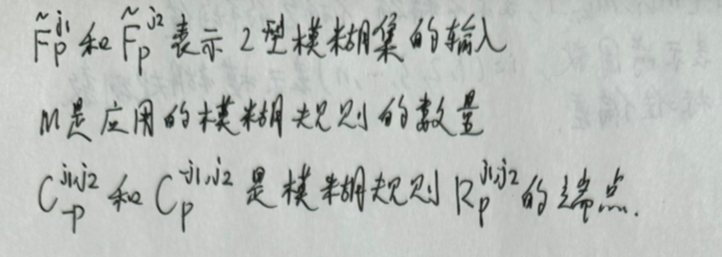 F̃ₚʲ¹ 和 F̃ₚʲ² 表示 2 型模糊集的输入
M是应用的模糊规则的数量
C̲ₚʲ¹,ʲ² 和 C̄ₚʲ¹,ʲ² 是模糊规则 Rₚʲ¹,ʲ² 的端点.